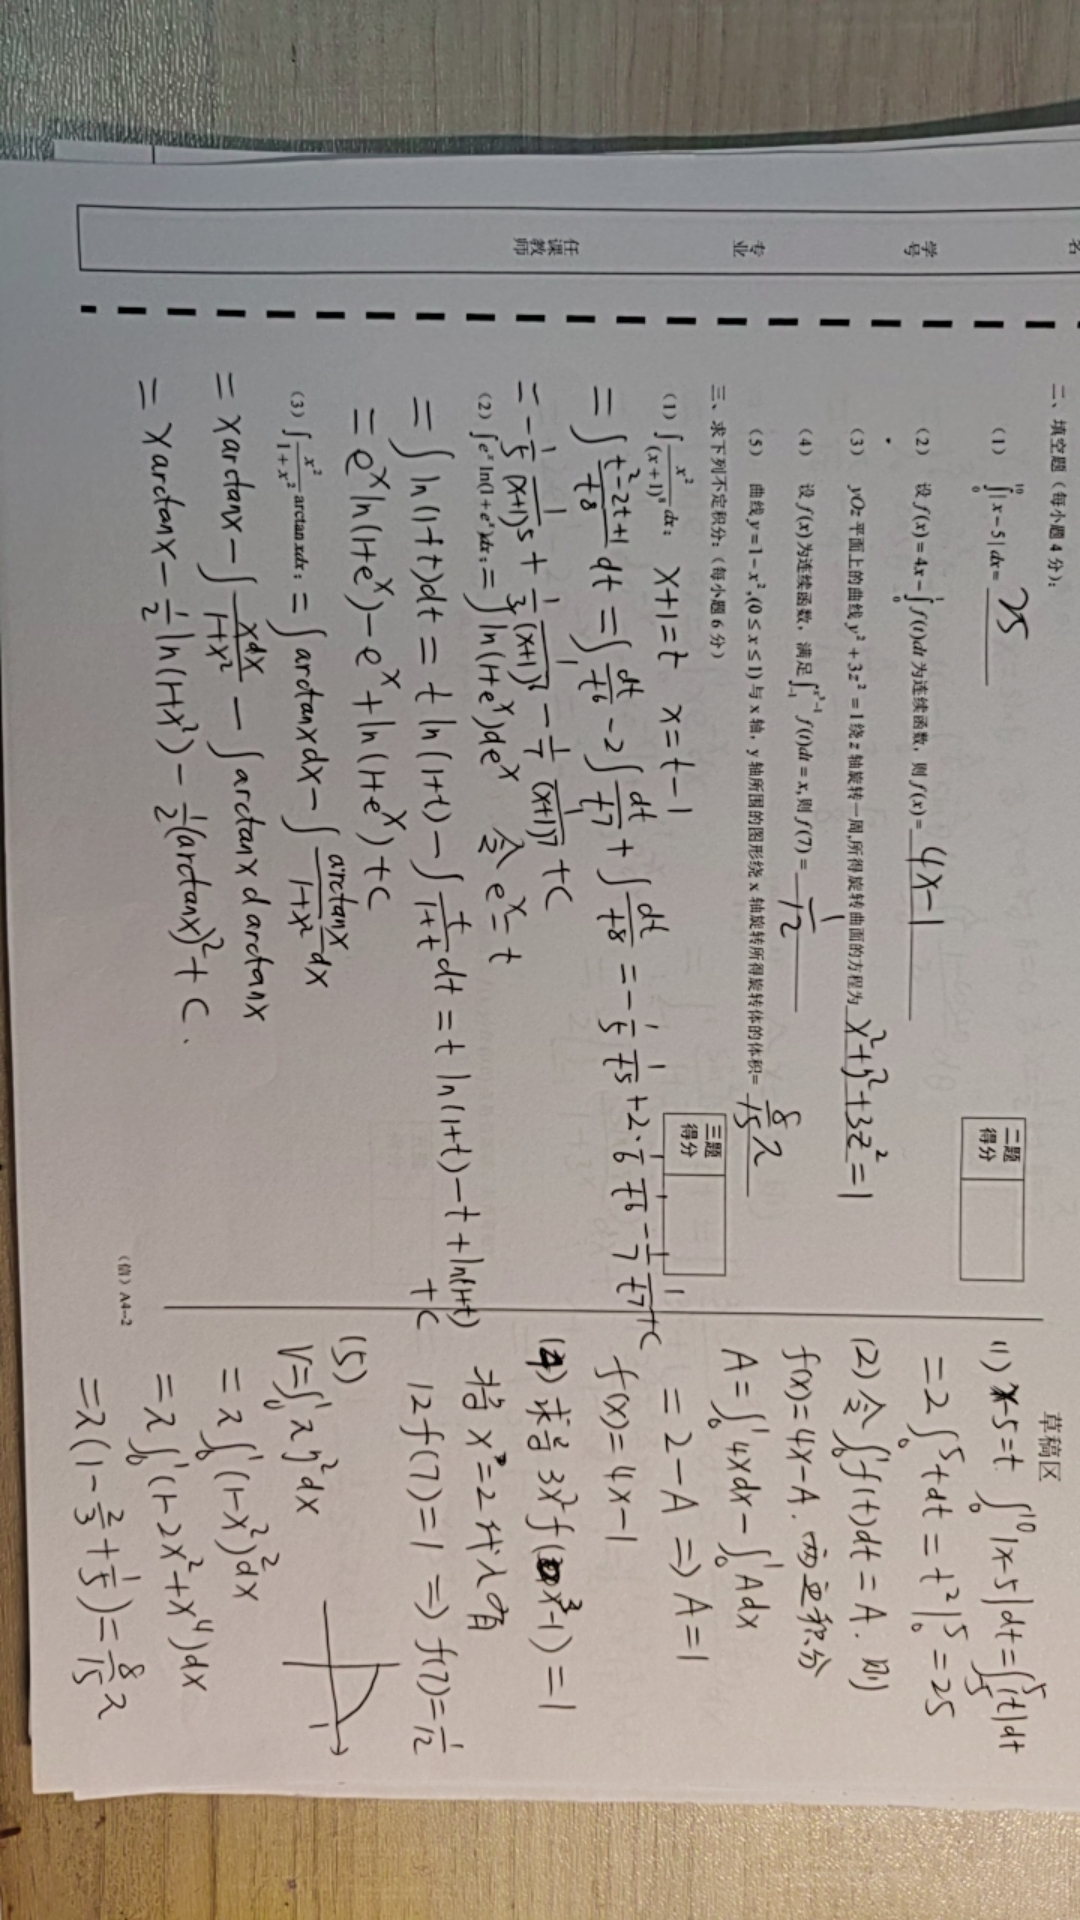 名
学号
专业
任课教师
二、填空题（每小题 4 分）：
二题得分
(1) ∫₀¹⁰ |x−5| dx = 25
(2) 设 f(x)=4x−∫₀¹ f(t)dt 为连续函数，则 f(x)= 4x−1
(3) yOz 平面上的曲线 y²+3z²=1 绕 z 轴旋转一周,所得旋转曲面的方程为 x²+y²+3z²=1
(4) 设 f(x) 为连续函数，满足 ∫₋₁^(x³−1) f(t)dt = x, 则 f(7)= 1/12
(5) 曲线 y=1−x²,(0≤x≤1) 与 x 轴，y 轴所围的图形绕 x 轴旋转所得旋转体的体积= 8/15 π
三、求下列不定积分：（每小题 6 分）
三题得分
(1) ∫ x²/(x+1)⁸ dx； x+1=t x=t−1
= ∫ (t²−2t+1)/t⁸ dt = ∫ dt/t⁶ − 2∫ dt/t⁷ + ∫ dt/t⁸ = −1/5 1/t⁵ + 2·1/6 1/t⁶ − 1/7 1/t⁷ + C
= −1/5 1/(x+1)⁵ + 1/3 1/(x+1)⁶ − 1/7 1/(x+1)⁷ + C
(2) ∫ eˣ ln(1+eˣ)dx； = ∫ ln(1+eˣ)deˣ 令 eˣ=t
= ∫ ln(1+t)dt = t ln(1+t) − ∫ t/(1+t) dt = t ln(1+t) − t + ln(1+t) + C
= eˣ ln(1+eˣ) − eˣ + ln(1+eˣ) + C
(3) ∫ x²/(1+x²) arctan x dx； = ∫ arctanx dx − ∫ arctanx/(1+x²) dx
= xarctanx − ∫ xdx/(1+x²) − ∫ arctanx d arctanx
= xarctanx − 1/2 ln(1+x²) − 1/2 (arctanx)² + C .
（信）A4-2
草稿区
(1) x−5=t ∫₀¹⁰ |x−5|dt = ∫₋₅⁵ |t|dt
= 2∫₀⁵ tdt = t²|₀⁵ = 25
(2) 令 ∫₀¹ f(t)dt = A . 则
f(x)=4x−A . 两边积分
A = ∫₀¹ 4xdx − ∫₀¹ Adx
= 2−A ⇒ A=1
f(x) = 4x−1
(4) 求导 3x² f(x³−1) = 1
将 x=2 代入有
12 f(7) = 1 ⇒ f(7) = 1/12
(5)
V = ∫₀¹ π y² dx
= π ∫₀¹ (1−x²)² dx
= π ∫₀¹ (1−2x²+x⁴) dx
= π (1 − 2/3 + 1/5) = 8/15 π
1